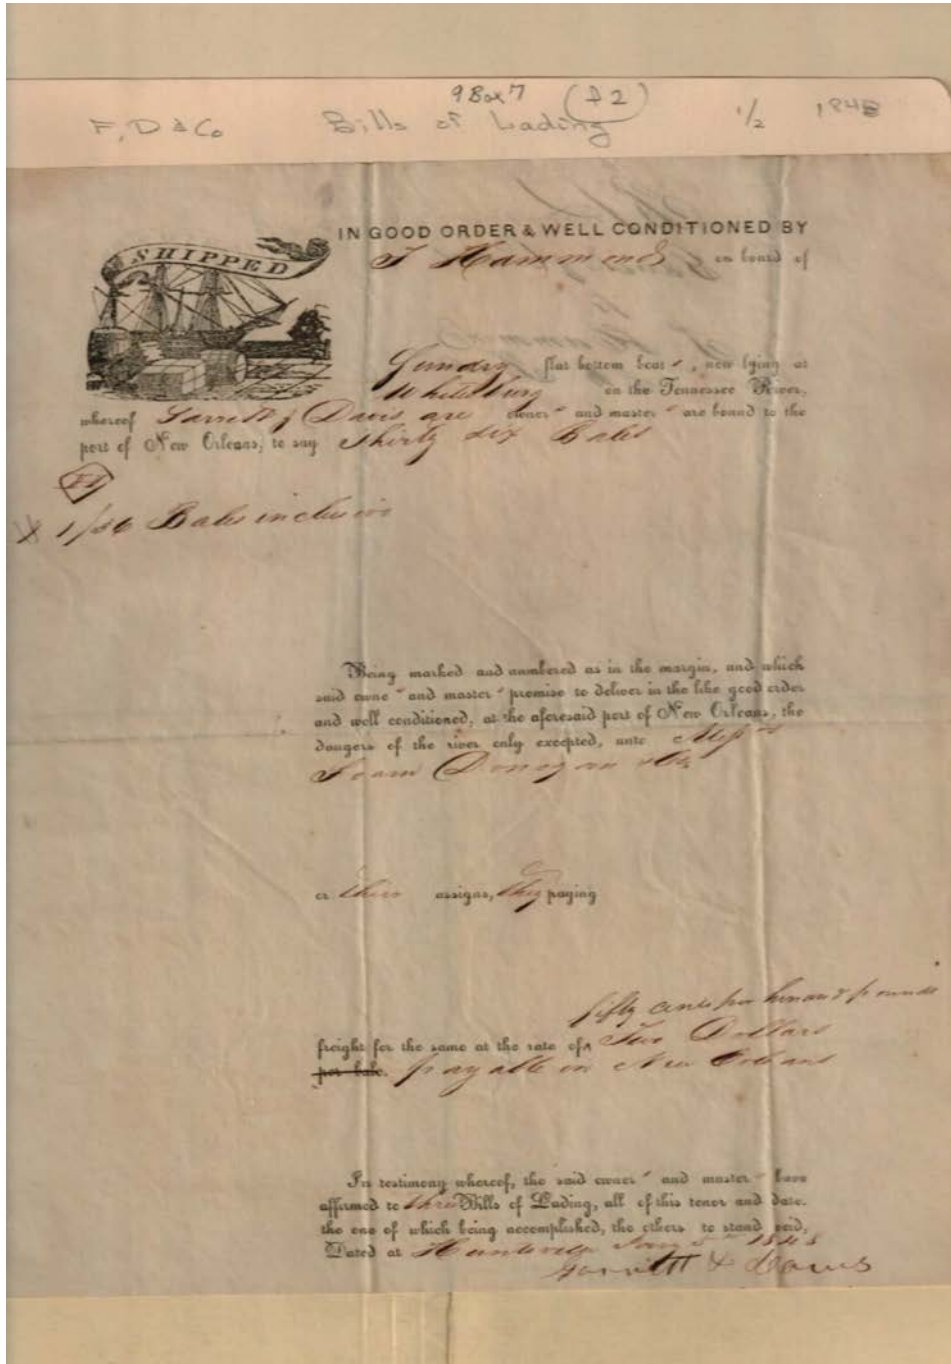 9 Box 7 (f 2)
F, D & Co Bills of Lading 1/2 1848
SHIPPED
IN GOOD ORDER & WELL CONDITIONED BY
T Hammond on board of
Sundry flat bottom boats, now lying at
Whitesburg on the Tennessee River,
whereof Garrett & Davis are owners and masters are bound to the
port of New Orleans; to say Thirty six Bales
1/36 Bales inclusive
Being marked and numbered as in the margin, and which
said owners and masters promise to deliver in the like good order
and well conditioned, at the aforesaid port of New Orleans, the
dangers of the river only excepted, unto Messrs
Fearn Donegan & Co.
or their assigns, they paying
fifty cents per hundred pounds
freight for the same at the rate of Two Dollars
per bale. payable in New Orleans
In testimony whereof, the said owners and masters have
affirmed to three Bills of Lading, all of this tenor and date.
the one of which being accomplished, the others to stand void,
Dated at Huntsville 5th 1848
Garrett & Davis